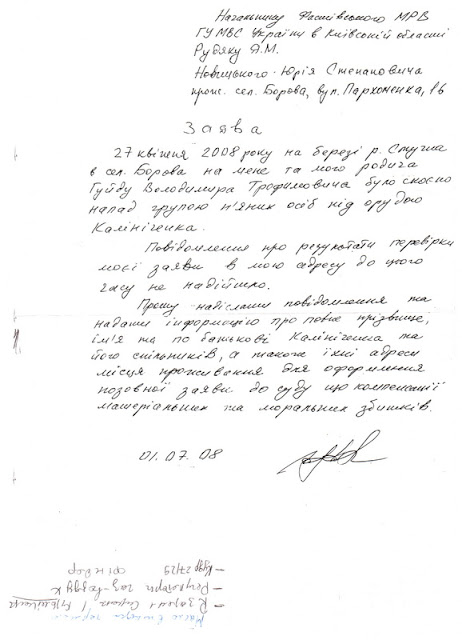 Начальнику Фастівського МРВ
ГУМВС України в Київській області
Рудяку Я.М.
Новицького Юрія Степановича
прож. сел. Борова, вул. Пархоменка, 16
Заява
27 квітня 2008 року на березі р. Стугна
в сел. Борова на мене та мого родича
Гуйду Володимира Трофимовича було скоєно
напад групою п'яних осіб під орудою
Калініченка.
Повідомлення про результати перевірки
моєї заяви в мою адресу до цього
часу не надійшло.
Прошу надіслати повідомлення та
надати інформацію про повне прізвище,
ім'я та по батькові Калініченка та
його спільників, а також їхні адреси
місця проживання для оформлення
позовної заяви до суду що компенсації
матеріальних та моральних збитків.
01.07.08